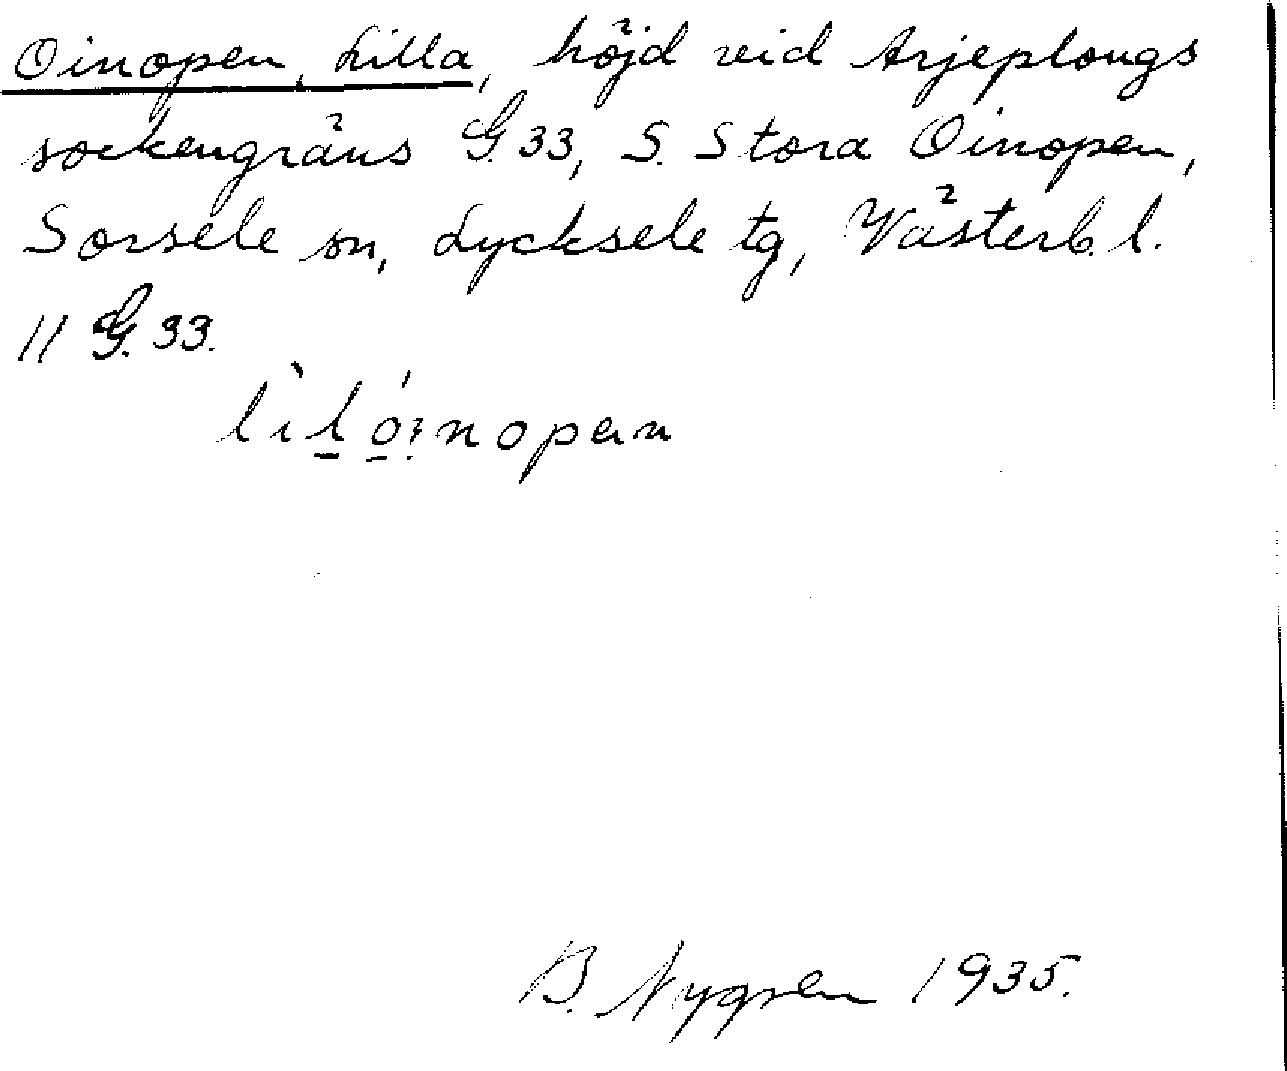 Oinopen, Lilla, höjd vid Arjeplougs
sockengräns G.33, S. Stora Oinopen,
Sorsele sn, Lycksele tg, Västerb. l.
// G.33.
lìl óinopen
B. Nygren 1935.